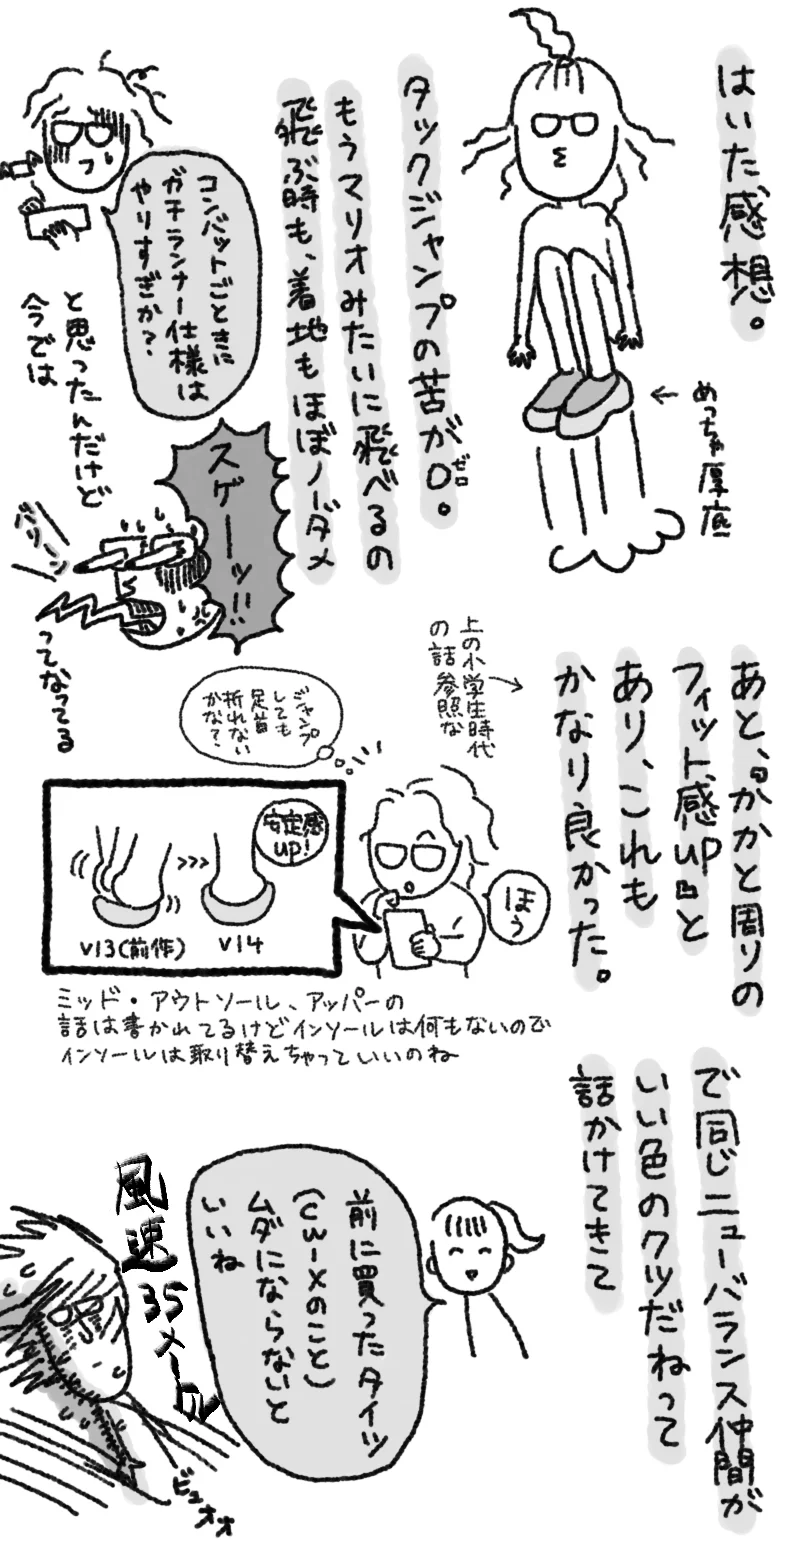 はいた感想。
←めっちゃ厚底
タックジャンプの苦が0。
ゼロ
もうマリオみたいに飛べるの
飛ぶ時も、着地もほぼノーダメ
コンバットごときに
ガチランナー仕様は
やりすぎか?
と思ったんだけど
今では
スゲーーッ!!
バリーン
ってなってる
あと、『かかと周りの
フィット感up』と
あり、これも
かなり良かった。
上の小学生時代
の話参照な
ジャンプ
しても
足首
折れない
かな?
ほう
安定感
up!
>>>
v13(前作)
v14
ミッド・アウトソール、アッパーの
話は書かれてるけどインソールは何もないので
インソールは取り替えちゃっていいのね
で同じニューバランス仲間が
いい色のクツだねって
話かけてきて
前に買ったタイツ
(cw-xのこと)
ムダにならないと
いいね
風速35メートル
ビュオオ